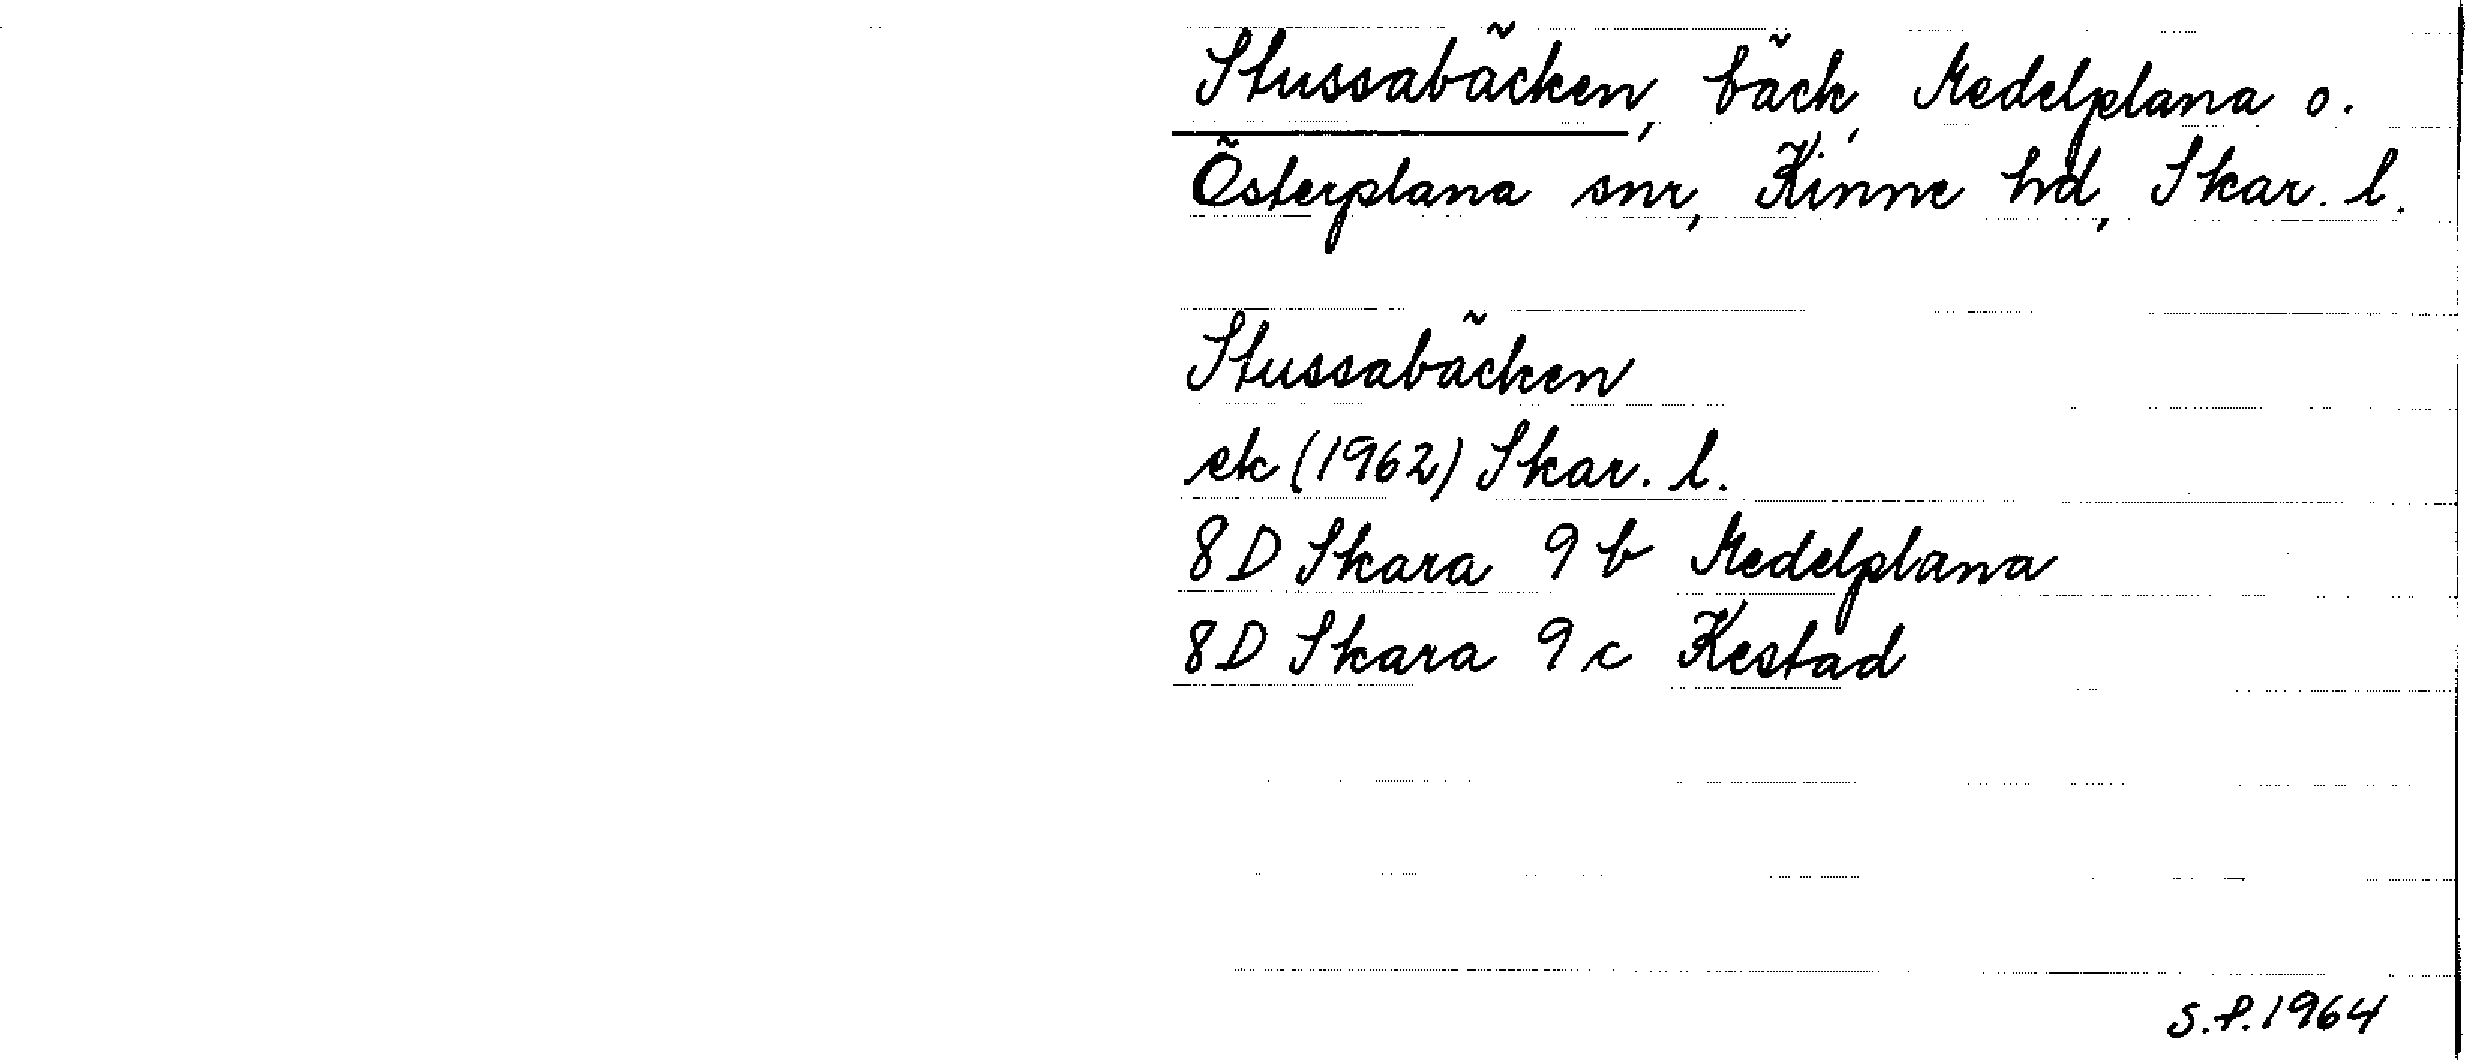 Stussabäcken, bäck, Medelplana o.
Österplana snr, Kinne hd, Skar. l.
Stussabäcken
ek (1962) Skar. l.
8 D Skara 9 b Medelplana
8 D Skara 9 c Kestad
S.P. 1964